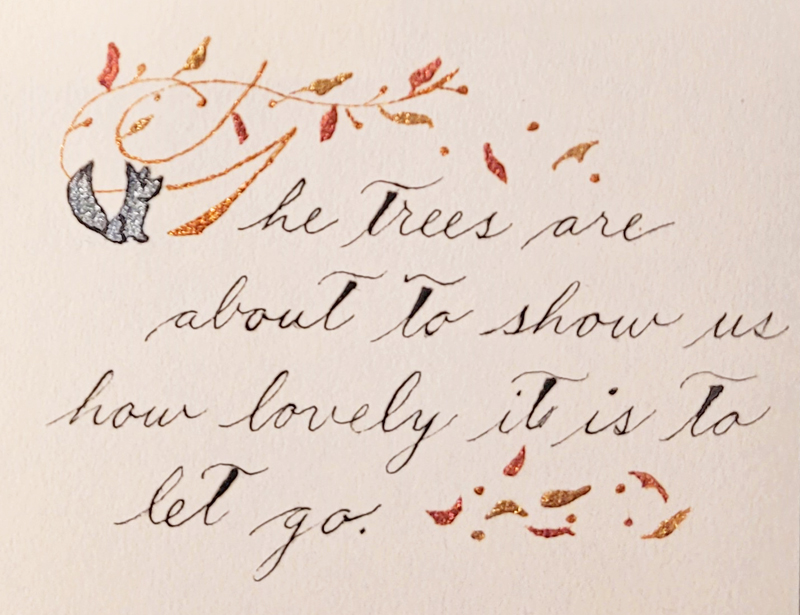 The trees are
about to show us
how lovely it is to
let go.